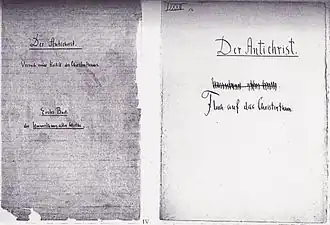 Der Antichrist.
Versuch einer Kritik des Christenthums.
Erstes Buch
der Umwerthung aller Werthe.
Der Antichrist.
Umwerthung aller Werthe
Fluch auf das Christenthum
IV